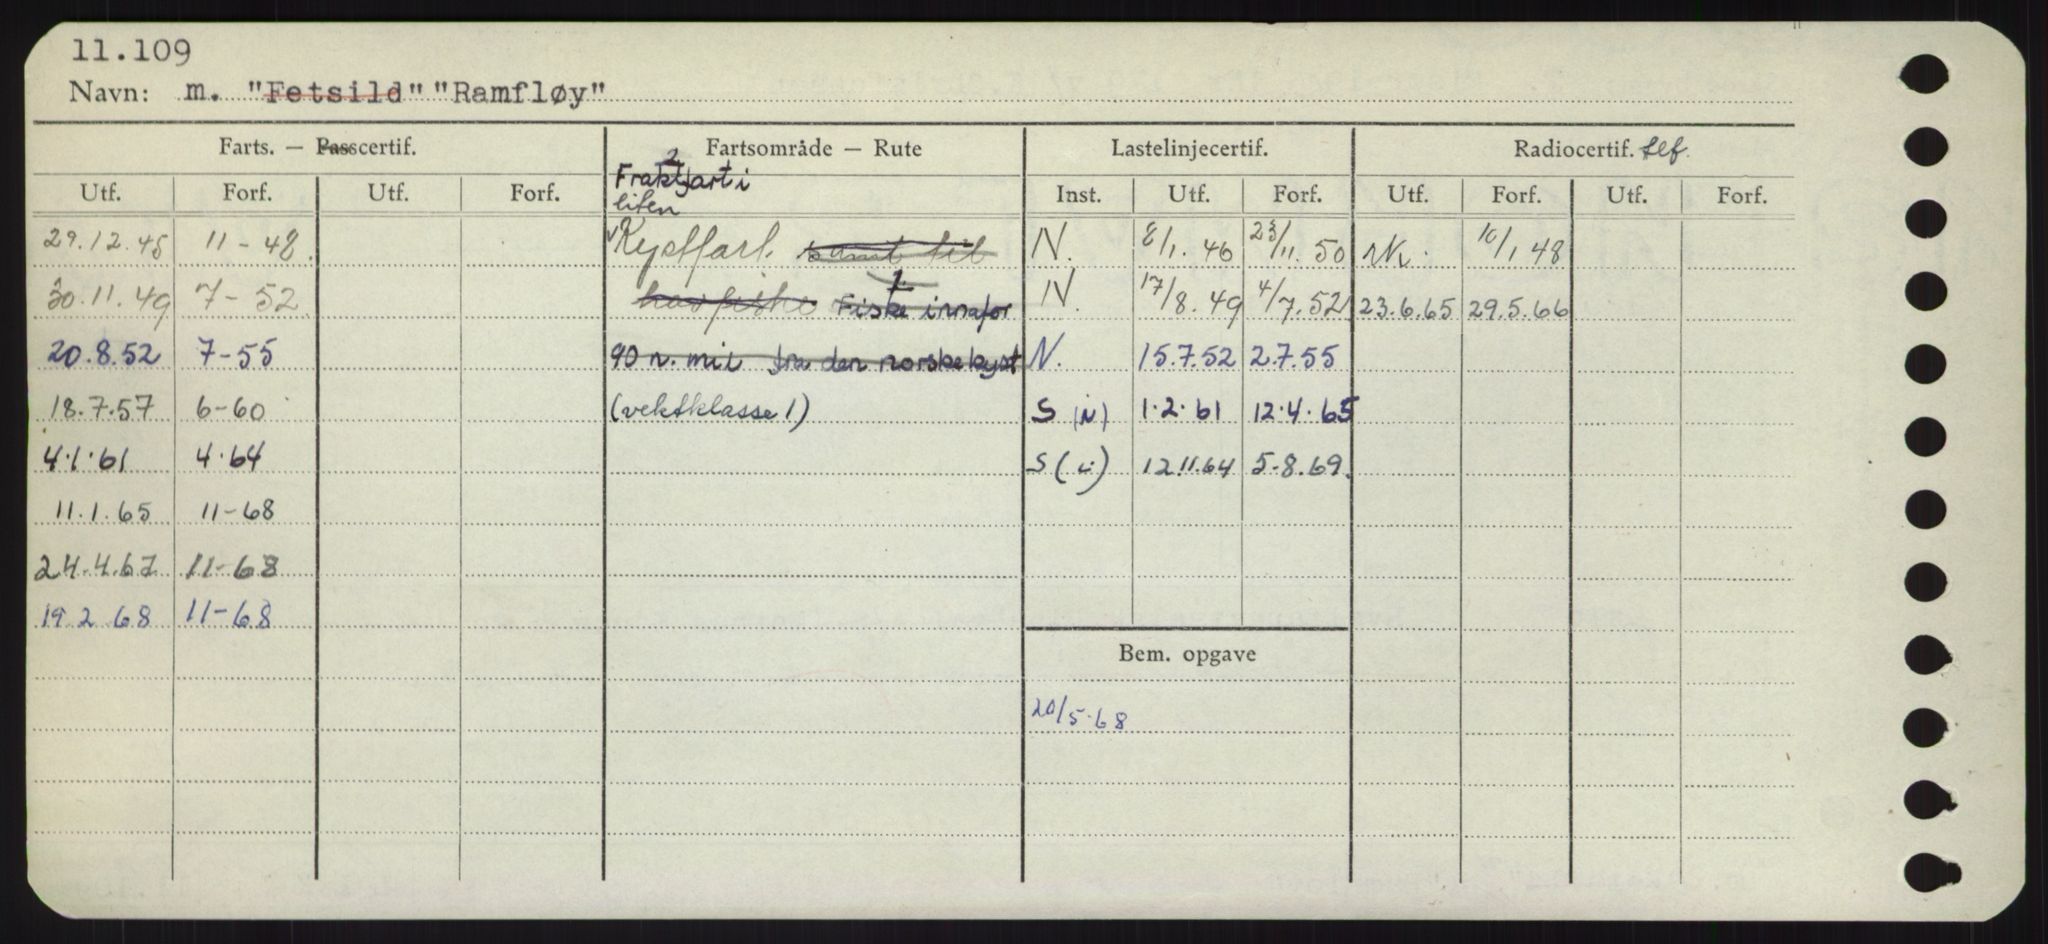 11.109
Navn: m. "Fetsild" "Ramfløy"
Farts. — Passcertif. Fartsområde — Rute Lastelinjecertif. Radiocertif. tlf.
2
Fraktfart i
Utf. Forf. Utf. Forf. liten Inst. Utf. Forf. Utf. Forf. Utf. Forf.
29.12.45 11-48. Kystfart samt til N. 8/1. 46 23/11. 50 10/1 48
1.
30.11.49 7-52 havfiske Fiske innafor N. 17/8.49 4/7.52 23.6.65 29.5.66
20.8.52 7-55 90 n. mil fra den norske kyst N. 15.7.52 2.7.55
18.7.57 6-60 (vektklasse 1) S (N) 1.2.61 12.4.65
4.1.61 4.64 S ( ) 12.11.64 5-8.69.
11.1.65 11-68
24.4.67 11-68
19 2 68 11-68
Bem. opgave
20/5.68